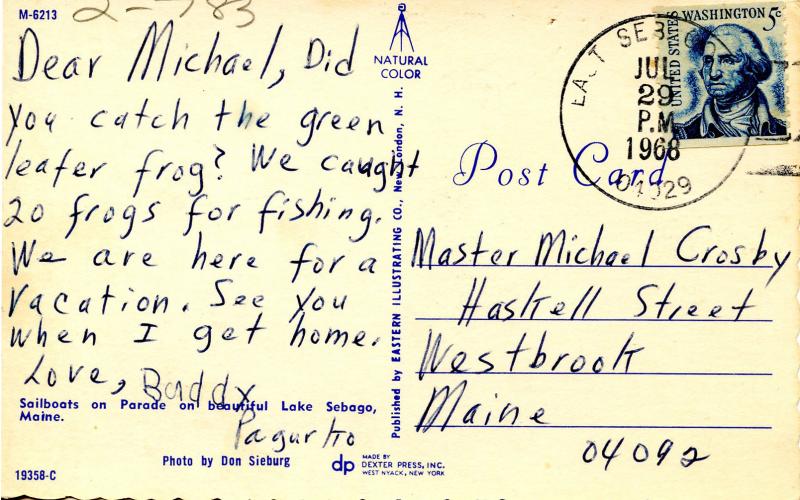 M-6213
2-783
Dear Michael, Did
you catch the green
leafer frog? We caught
20 frogs for fishing.
We are here for a
vacation. See you
when I get home.
Love, Buddy
Pagurko
Sailboats on Parade on beautiful Lake Sebago,
Maine.
Photo by Don Sieburg
19358-C
dp
MADE BY
DEXTER PRESS, INC.
WEST NYACK, NEW YORK
NATURAL
COLOR
Published by EASTERN ILLUSTRATING CO., New London, N. H.
Post Card
EAST SEBAGO
JUL
29
P.M
1968
UNITED STATES
WASHINGTON 5c
Master Michael Crosby
Haskell Street
Westbrook
Maine
04092